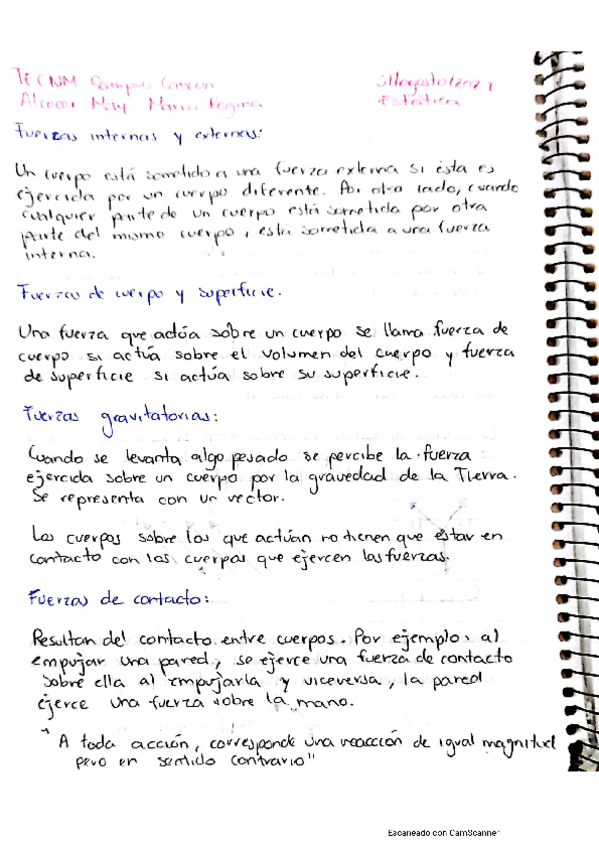 TECNM Campus Cancún
31/agosto/202
Alcocer May María Regina
Estática
Fuerzas internas y externas:
Un cuerpo está sometido a una fuerza externa si ésta es
ejercida por un cuerpo diferente. Por otro lado, cuando
cualquier parte de un cuerpo está sometida por otra
parte del mismo cuerpo, está sometida a una fuerza
interna.
Fuerzas de cuerpo y superficie.
Una fuerza que actúa sobre un cuerpo se llama fuerza de
cuerpo si actúa sobre el volumen del cuerpo y fuerza
de superficie si actúa sobre su superficie.
Fuerzas gravitatorias:
Cuando se levanta algo pesado se percibe la fuerza
ejercida sobre un cuerpo por la gravedad de la Tierra.
Se representa con un vector.
Los cuerpos sobre los que actúan no tienen que estar en
contacto con los cuerpos que ejercen las fuerzas.
Fuerzas de contacto:
Resultan del contacto entre cuerpos. Por ejemplo: al
empujar una pared, se ejerce una fuerza de contacto
sobre ella al empujarla y viceversa, la pared
ejerce una fuerza sobre la mano.
" A toda acción, corresponde una reacción de igual magnitud
pero en sentido contrario"
Escaneado con CamScanner